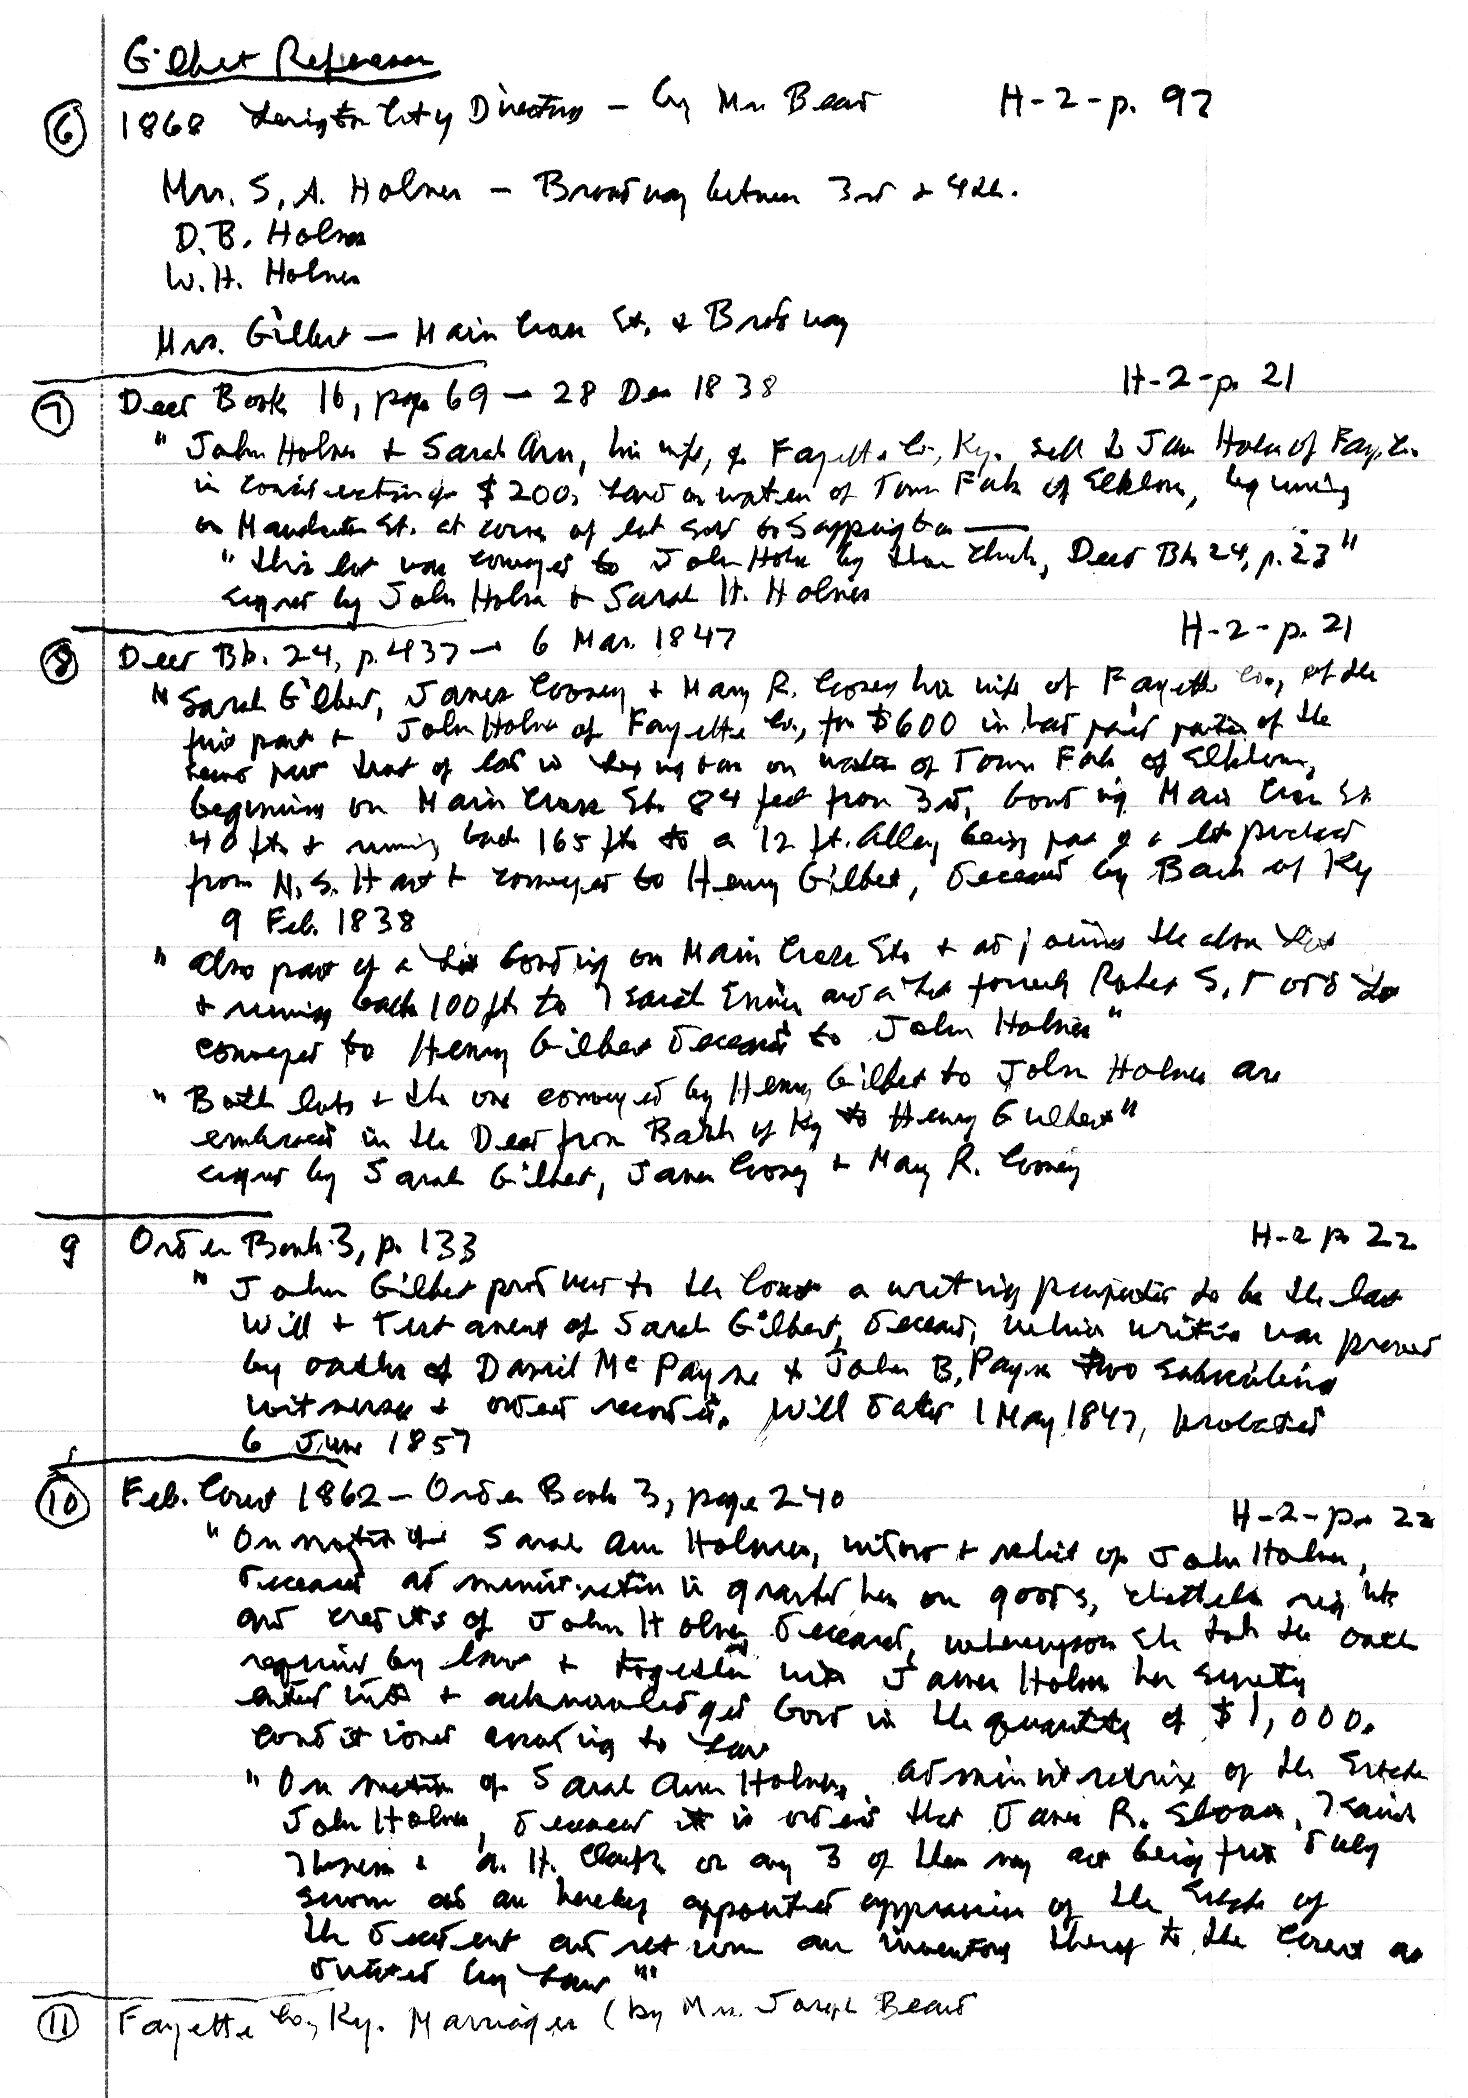 Gilbert References
⑥ 1868 Lexington City Directory – by Mrs Beard H-2-p. 92
Mrs. S. A. Holmes – Broadway between 3rd + 4th.
D. B. Holmes
W. H. Holmes
Mrs. Gilbert – Main Cross St. + Broadway
⑦ Deed Book 16, page 69 – 28 Dec 1838 H-2-p. 21
" John Holmes + Sarah Ann, his wife, of Fayette Co, Ky. sell to Holmes of Fay. Co.
in consideration of $200, Land on waters of Town Fork of Elkhorn, beginning
on St. at corner of lot sold to Sappington —
" this lot was conveyed to John Holmes by Deed Bk 24, p. 23"
signed by John Holmes + Sarah H. Holmes
⑧ Deed Bk. 24, p. 437 – 6 Mar. 1847 H-2-p. 21
" Sarah Gilbert, James Cooney + Mary R. Cooney his wife of Fayette Co, of the
first part + John Holmes of Fayette Co, for $600 in hand paid parties of the
second part that of lot in Lexington on waters of Town Fork of Elkhorn,
beginning on Main Cross St. 84 feet from 3rd, bonding Main Cross St
40 ft. + running back 165 ft. to a 12 ft. Alley being part of a lot purchased
from N. S. Hart + conveyed to Henry Gilbert, deceased by Bank of Ky
9 Feb. 1838
" also part of a lot bonding on Main Cross St. + adjoining the above lot
+ running back 100 ft. to and a lot formerly Robert S. Todd's
conveyed to Henry Gilbert deceased to John Holmes"
" Both lots + the one conveyed by Henry Gilbert to John Holmes are
embraced in the Deed from Bank of Ky to Henry Gilbert"
signed by Sarah Gilbert, James Cooney + Mary R. Cooney
9 Order Book 3, p. 133 H-2 p. 22
" John Gilbert produced to the Court a writing purported to be the last
Will + Testament of Sarah Gilbert, deceased, which writing was proved
by oaths of Daniel Mc Payne + John B. Payne two subscribing
witnesses + ordered recorded. Will dated 1 May 1847, probated
6 June 1857
⑩ Feb. Court 1862 – Order Book 3, page 240 H-2-p. 22
" On motion of Sarah Ann Holmes, widow + relict of John Holmes,
deceased administration is granted her on goods, chattels rights
and credits of John Holmes deceased, whereupon she took the oath
required by law + together with James Holmes her surety
entered into + acknowledged bond in the quantity of $1,000.
conditioned according to Law
" On motion of Sarah Ann Holmes, administratrix of the Estate
John Holmes, deceased it is ordered that James R. Sloan,
+ H. or any 3 of them may act being first duly
sworn and are hereby appointed appraisers of the Estate of
the decedent and return an inventory thereof to the Court as
directed by Law "'
⑪ Fayette Co, Ky. Marriages (by Mrs. Joseph Beard